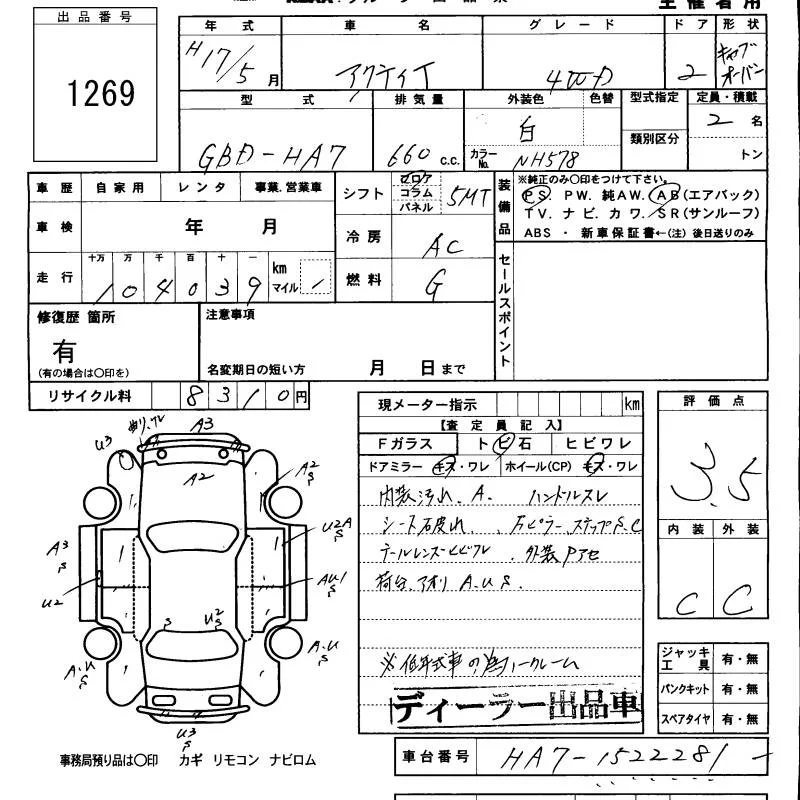 出品番号
1269
年式 車名 グレード ドア 形状
H17/5月 アクティ 4WD 2 キャブオーバー
型式 排気量 外装色 色替 型式指定 定員・積載
GBD-HA7 660 c.c. 白 2名
カラーNo. NH578 類別区分 トン
車歴 自家用 レンタ 事業.営業車
シフト フロア コラム パネル 5MT
装備品
※純正のみ〇印をつけて下さい。
PS. PW. 純AW. AB(エアバック)
TV. ナビ. カワ. SR(サンルーフ)
ABS ・ 新車保証書←(注) 後日送りのみ
車検 年 月
冷房 AC
走行 十万 万 千 百 十 一 km マイル
104039
燃料 G
セールスポイント
修復歴 箇所
有
(有の場合は〇印を)
注意事項
名変期日の短い方 月 日まで
リサイクル料 8310円
現メーター指示 km
【査定員記入】
Fガラス トビ石 ヒビワレ
ドアミラー キズ・ワレ ホイール(CP) キズ・ワレ
内装汚れ、A. ハンドルスレ
テールレンズヒビワレ、外装Pアセ
荷台、アオリ A.U.S.
ディーラー出品車
評価点
3.5
内装 外装
C C
ジャッキ工具 有・無
パンクキット 有・無
スペアタイヤ 有・無
U3 A3
A2 A2 S
A3 S U2A S
U2 AU1 S
S U2 S
A.U S A.U S
U3 S
事務局預り品は〇印 カギ リモコン ナビロム
車台番号 HA7-1522281